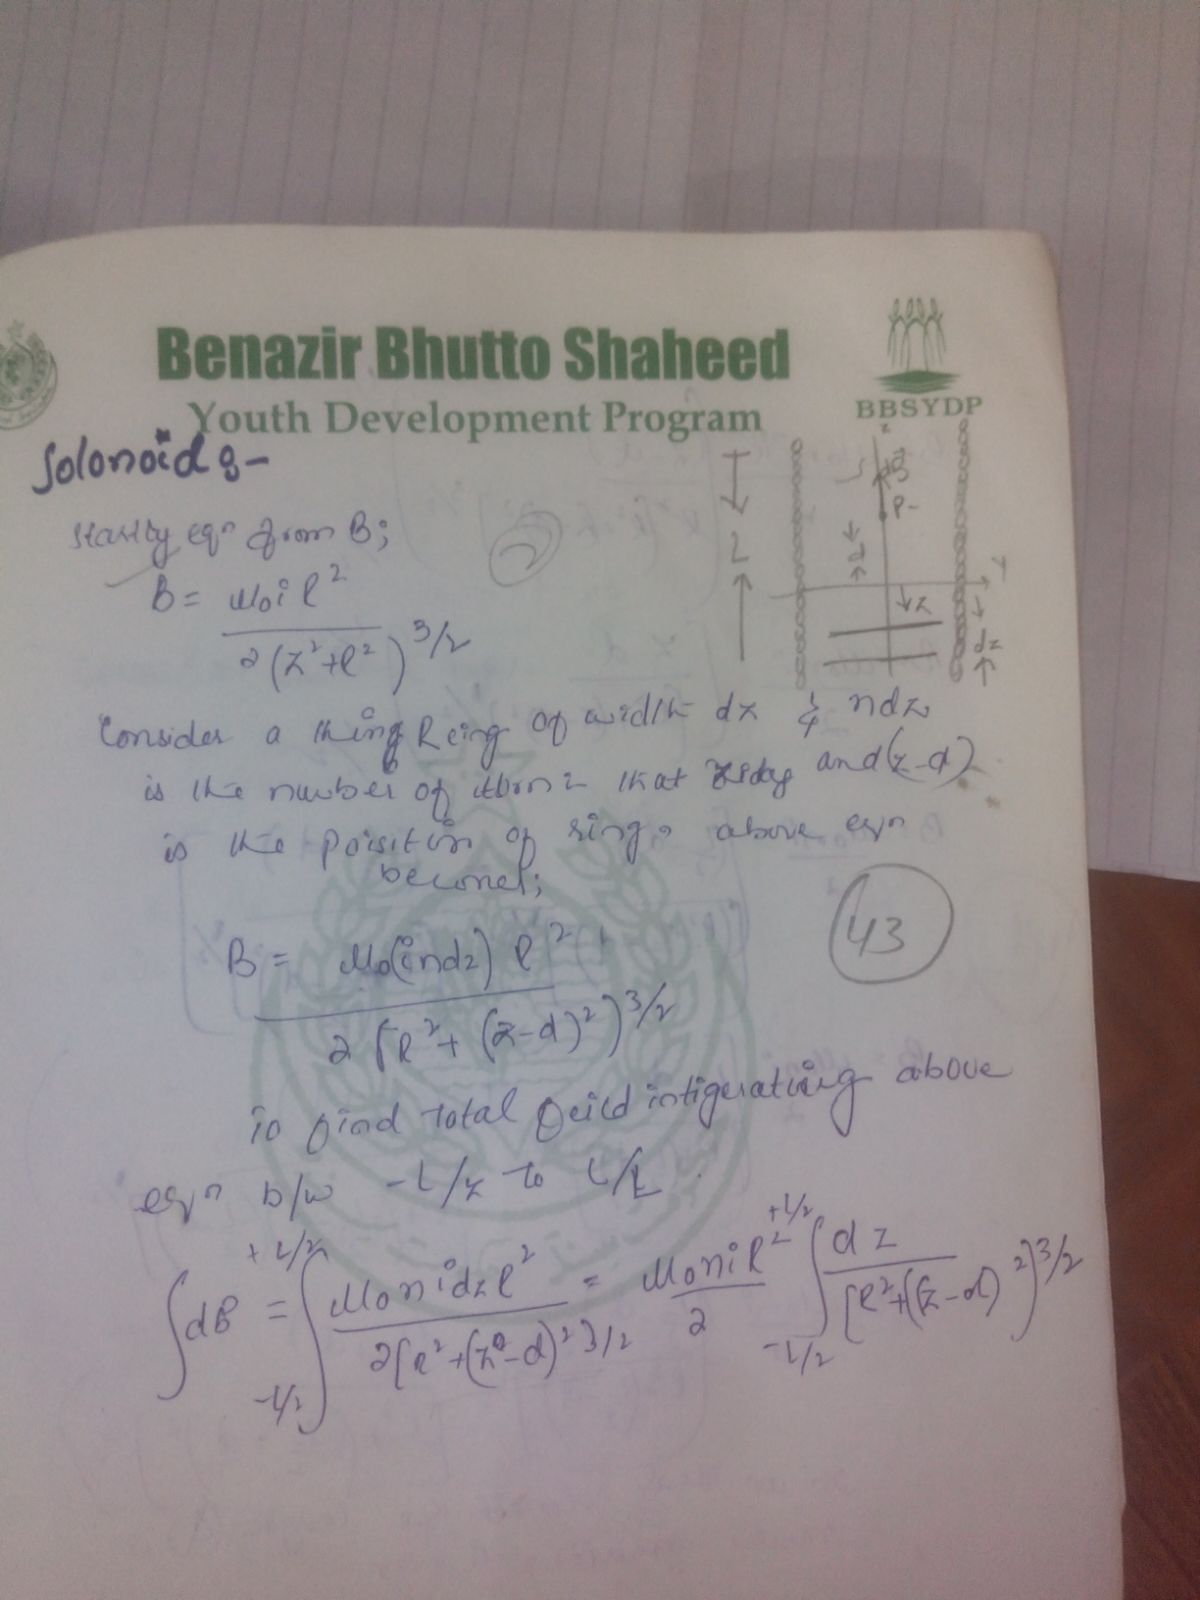 Benazir Bhutto Shaheed
Youth Development Program
BBSYDP
Solonoid :-
eqn from B;
B = μ₀iR²
2(z²+R²)^3/2
L
P
z
y
dz
Consider a thing Reing of width dz & ndz
is the number of that and (z-d)
is the poisition of ring. above eqn
becomes;
B = μ₀(indz) R²
2[R²+(z-d)²]^3/2
To find total feild intigerativig above
eqn b/w -L/2 to L/2.
∫dB = ∫ -L/2 +L/2 μ₀nidzR² / 2[R²+(z-d)²]^3/2 = μ₀niR² / 2 ∫ -L/2 +L/2 dz / [R²+(z-d)²]^3/2
43